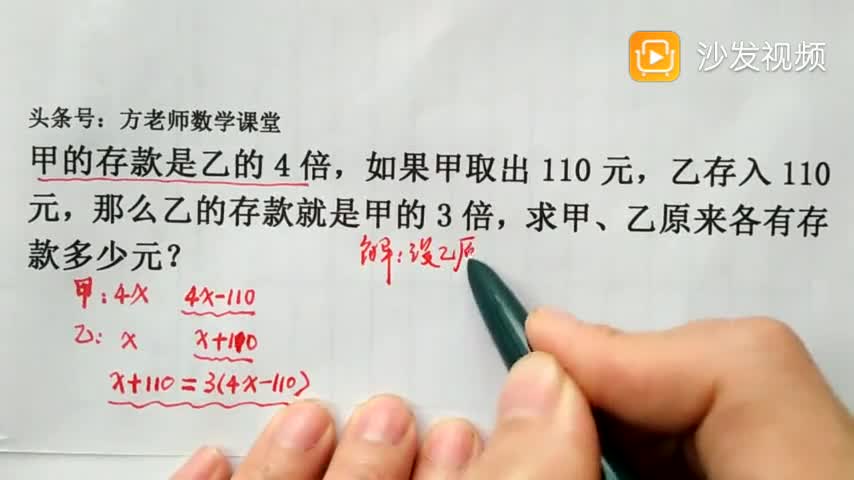 沙发视频
头条号：方老师数学课堂
甲的存款是乙的4倍，如果甲取出110元，乙存入110
元，那么乙的存款就是甲的3倍，求甲、乙原来各有存
款多少元？
解：设乙原
甲：4x 4x-110
乙：x x+110
x+110=3(4x-110)